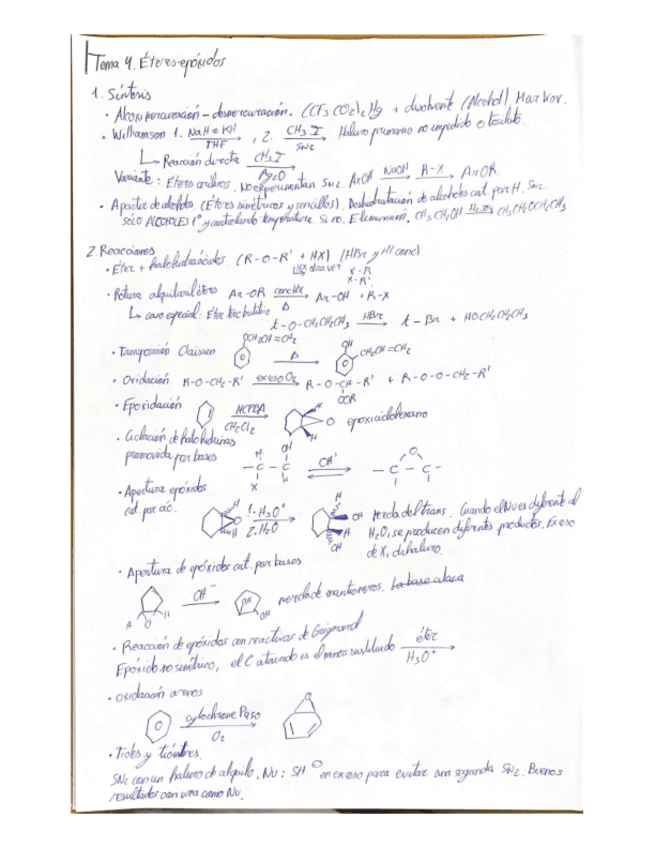 Tema 4. Éteres-epóxidos
1. Síntesis
· Alcoximercuriación - desmercuriación. (CF3 CO2)2 Hg + disolvente (Alcohol) Markov.
· Williamson 1. NaH o KH / THF , 2. CH3 I / SN2 Haluro primario no impedido o tosilato.
↳ Reacción directa CH3 I / Ag2O
Variante: Éteres arílicos. No experimentan SN2. ArOH NaOH → R-X → ArOR
· A partir de alcoholes (Éteres simétricos y sencillos). Deshidratación de alcoholes cat. por H. SN2
Sólo ALCOHOLES 1º y controlando temperatura. Si no. Eliminación. CH3 CH2OH H2SO4 → CH3CH2OCH2CH3
2. Reacciones
· Éter + halohidrácidos (R-O-R' + HX) (HBr y HI conc)
X-R
X-R'
· Rotura alquilaril éteres Ar-OR conc HX / Δ → Ar-OH + R-X
↳ caso especial: Éter terc butílico t-O-CH2CH2CH3 HBr → t-Br + HOCH2CH2CH3
· Transposición Claisen OCH2CH=CH2 Δ → OH CH2CH=CH2
· Oxidación R-O-CH2-R' exceso O2 → R-O-CH-R' + R-O-O-CH2-R'
OOR
· Epoxidación MCPBA / CH2Cl2 → H O H epoxiciclohexano
· Ciclación de halohidrinas
promovida por bases H OH -C-C- X H OH⁻ ⇌ -C-C- O
· Apertura epóxidos
cat por ác. H O H 1. H3O⁺ / 2. H2O → H OH H OH Mezcla del trans. Cuando el Nu es diferente al
H2O, se producen diferentes productos. Exceso
de X, dihaluro.
· Apertura de epóxidos cat. por bases
O OH⁻ → OH OH mezcla de enantiómeros. La base ataca
· Reacción de epóxidos con reactivos de Grignard
Epóxido no simétrico, el C atacado es el menos sustituido éter / H3O⁺ →
· Oxidación arenos
cytochrome P450 / O2 → O
· Tioles y tioéteres.
SN2 con un haluro de alquilo. Nu: SH⊖ en exceso para evitar una segunda SN2. Buenos
resultados con urea como Nu.